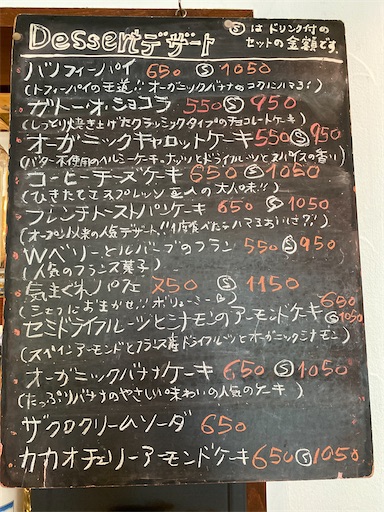 Dessert デザート
Ⓢはドリンク付の
セットの金額です。
バノフィーパイ 650 Ⓢ 1050
(トフィーパイの王道!! オーガニックバナナのコクにハマる!)
ガトー・オ・ショコラ 550 Ⓢ 950
(しっとり焼き上げたクラッシックタイプのチョコレートケーキ)
オーガニックキャロットケーキ 550 Ⓢ 950
(バター不使用のヘルシーケーキ。ナッツとドライフルーツとスパイスの香り)
コーヒーチーズケーキ 650 Ⓢ 1050
(ひきたてエスプレッソ 大人の大人味!!)
フレンチトーストパンケーキ 650 Ⓢ 1050
(オープン以来の人気デザート!! 1度食べたらハマるおいしさ?!)
Wベリーとルバーブのフラン 550 Ⓢ 950
(人気のフランス菓子)
気まぐれパフェ 750 Ⓢ 1150
(シェフにおまかせ!! ボリューミー)
セミドライフルーツとシナモンのアーモンドケーキ 650 Ⓢ 1050
(スペインアーモンドとフランス産ドライフルーツとオーガニックシナモン)
オーガニックバナナケーキ 650 Ⓢ 1050
(たっぷりバナナのやさしい味わいの人気のケーキ)
ザクロクリームソーダ 650
カカオチェリーアーモンドケーキ 650 Ⓢ 1050